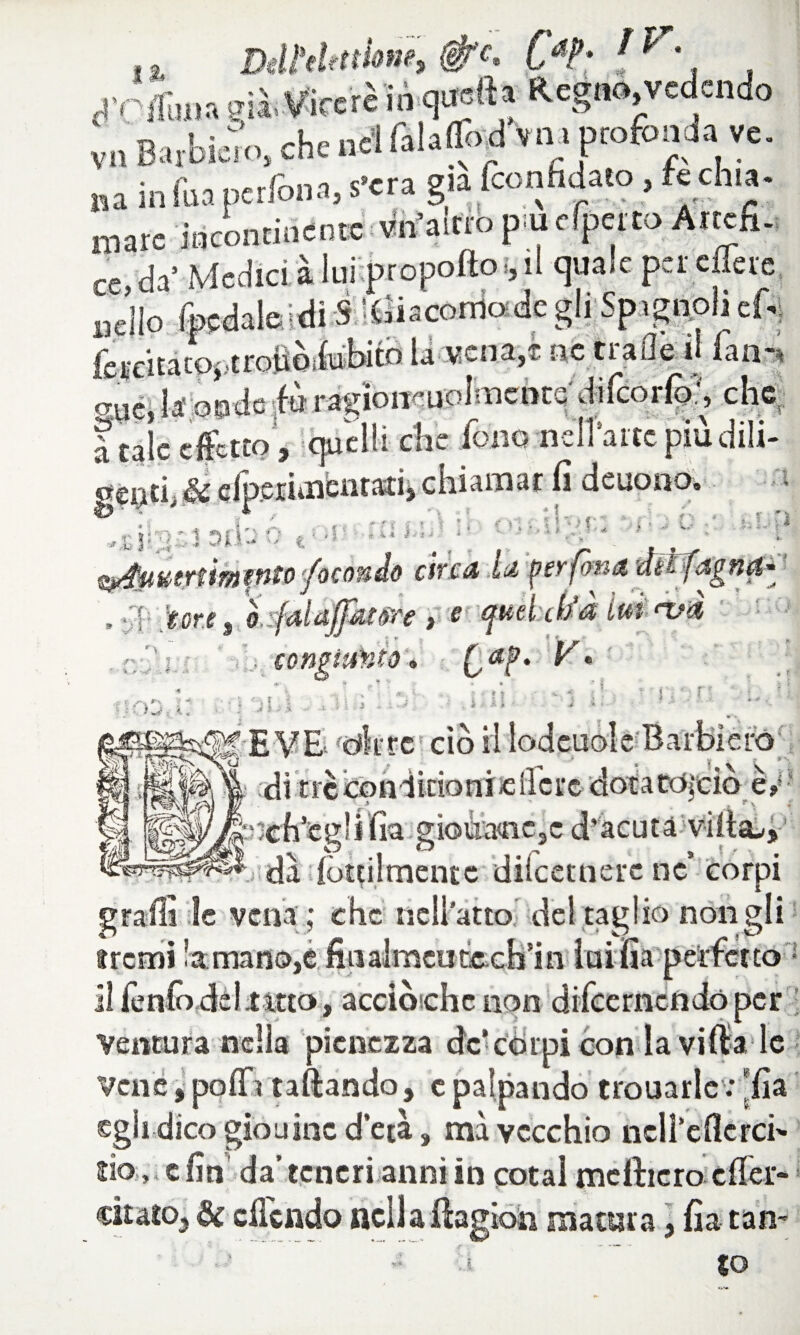 12 Dell'elettione, &c. Cap. IV.
d'Ossuna già Vicerè in questa Regno, vedendo
vn Barbiero, che nel salasso d'vna profonda ve-
na in sua persona, s'era già sconfidato, fè chia-
mare incontinente vn'altro più esperto Artefi-
ce, da' Medici à lui proposto, il quale per essere
nello spedale di S. Giacomo de gli Spagnoli es-
sercitato, trouò subito la vena, e ne trasse il san-
gue, la onde fù ragioneuolmente discorso, che
à tale effetto, quelli che sono nell'arte più dili-
genti, & esperimentati, chiamar si deuono.
Auuertimento secondo circa la persona del sagna-
tore, ò salassatore, e quel ch'à lui và
congiunto. Cap. V.
DEVE oltre ciò il lodeuole Barbiero
di trè conditioni essere dotato; ciò è,
ch'egli sia giouane, e d'acuta vista,
dà sottilmente discernere ne' corpi
grassi le vena; che nell'atto del taglio non gli
tremi la mano, e finalmente ch'in lui sia perfetto
il senso del tatto, acciò che non discernendo per
ventura nella pienezza de' corpi con la vista le
vene, possa tastando, e palpando trouarle: sia
egli dico giouine d'età, mà vecchio nell'esserci-
tio, e fin da' teneri anni in cotal mestiero esser-
citato, & essendo nella stagion matura, sia tan-
to